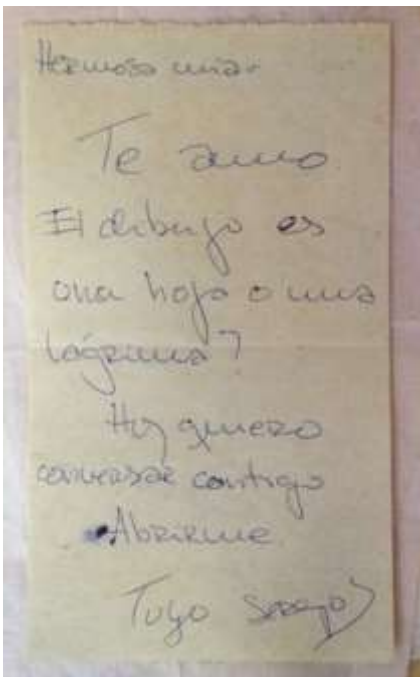 Hermosa mia.
Te amo
El dibujo es
una hoja o una
lágrima?
Hoy quiero
conversar contigo
Abrirme
Tuyo